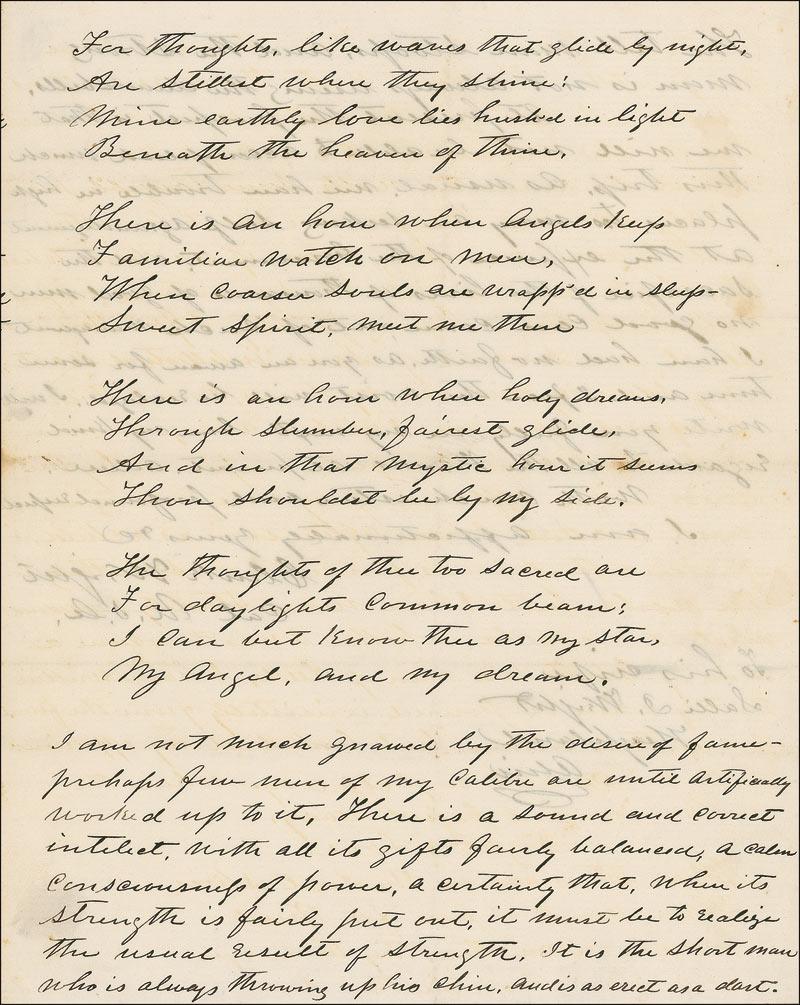 For thoughts, like waves that glide by night,
Are stillest where they shine:
Mine earthly love lies hush'd in light
Beneath the heaven of thine.
There is an hour when Angels keep
Familiar watch on men,
When coarser souls are wrapp'd in sleep-
Sweet Spirit, meet me then
There is an hour when holy dreams,
Through slumber, fairest glide,
And in that mystic hour it seems
Thou shouldst be by my side.
The thoughts of thee too sacred are
For daylights common beam:
I can but know thee as my star,
My Angel, and my dream.
I am not much gnawed by the desire of fame-
perhaps few men of my calibre are until artificially
worked up to it. There is a sound and correct
intelect, with all its gifts fairly balanced, a calm
consciousness of power, a certainty that, when its
strength is fairly put out, it must be to realize
the usual result of strength. It is the short man
who is always throwing up his chin, and is as erect as a dart.